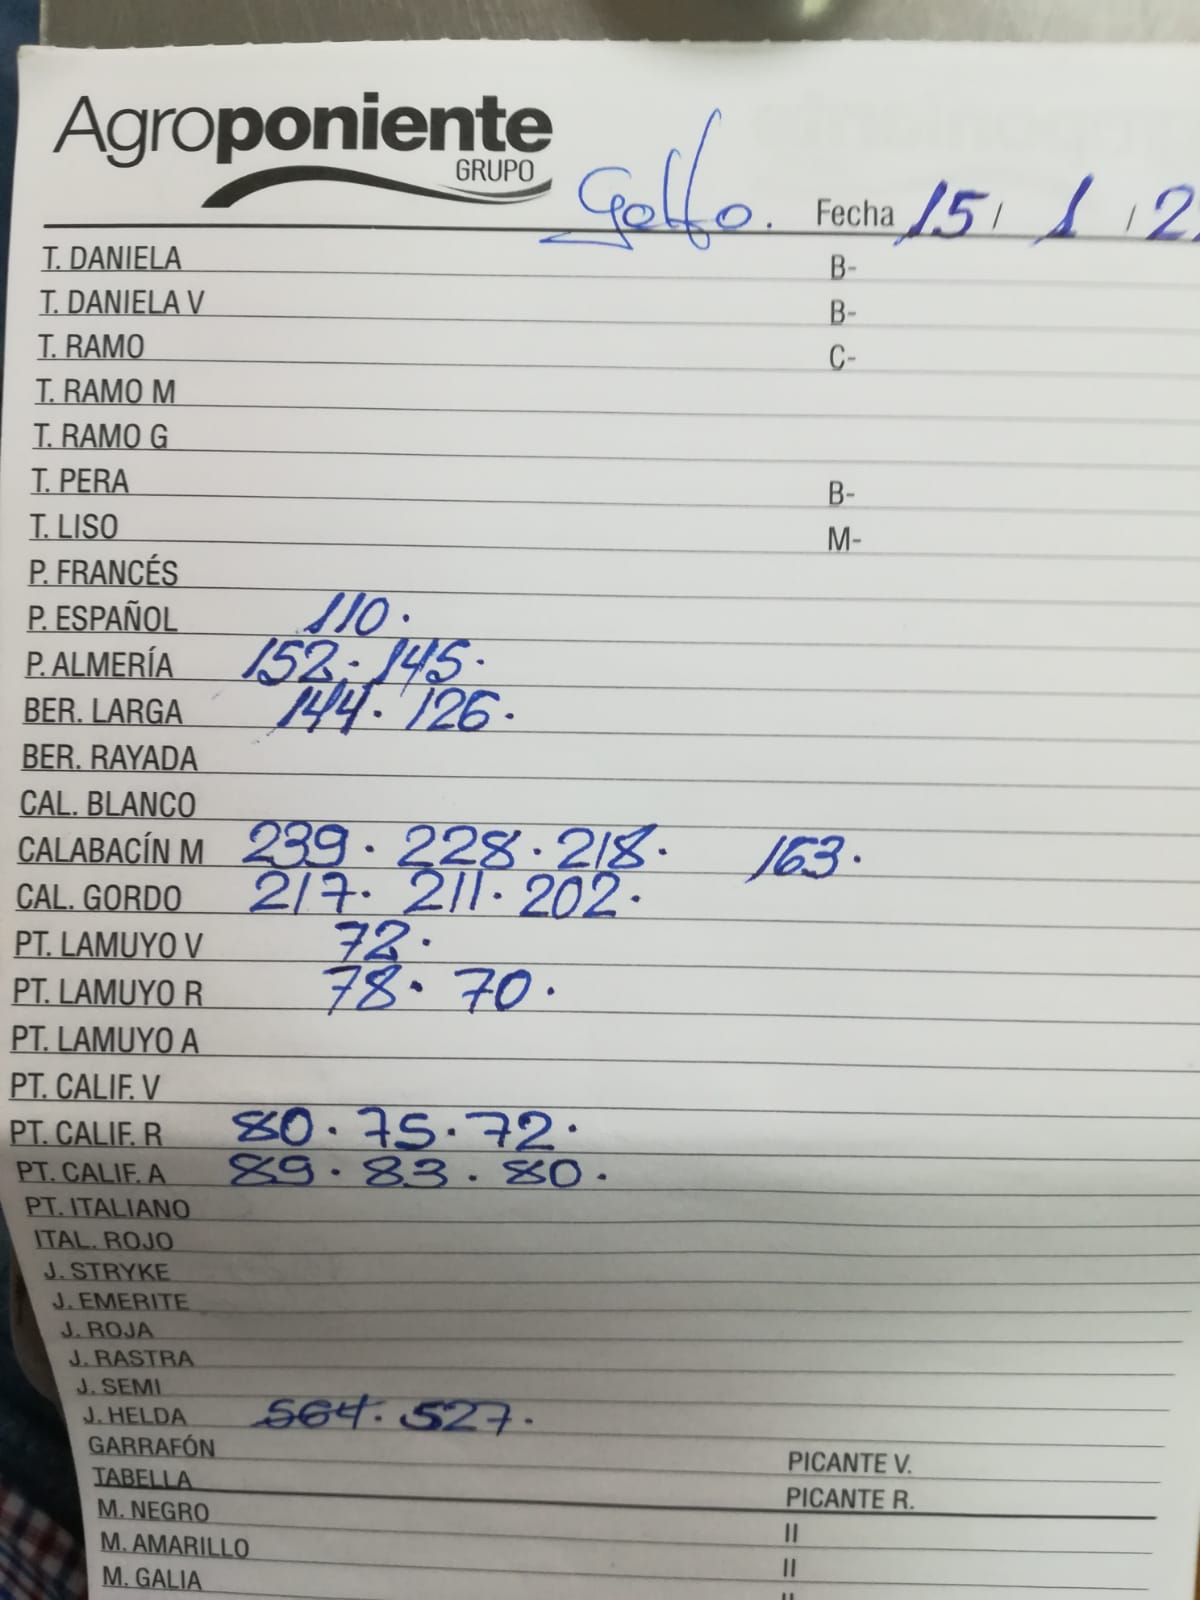 Agroponiente
GRUPO
Golfo. Fecha 15 / 1 / 2
T. DANIELA B-
T. DANIELA V B-
T. RAMO C-
T. RAMO M
T. RAMO G
T. PERA B-
T. LISO M-
P. FRANCÉS
P. ESPAÑOL 110.
P. ALMERÍA 152. 145.
BER. LARGA 144. 126.
BER. RAYADA
CAL. BLANCO
CALABACÍN M 239. 228. 218. 163.
CAL. GORDO 217. 211. 202.
PT. LAMUYO V 72.
PT. LAMUYO R 78. 70.
PT. LAMUYO A
PT. CALIF. V
PT. CALIF. R 80. 75. 72.
PT. CALIF. A 89. 83. 80.
PT. ITALIANO
ITAL. ROJO
J. STRYKE
J. EMERITE
J. ROJA
J. RASTRA
J. SEMI
J. HELDA 564. 527.
GARRAFÓN PICANTE V.
TABELLA PICANTE R.
M. NEGRO II
M. AMARILLO II
M. GALIA